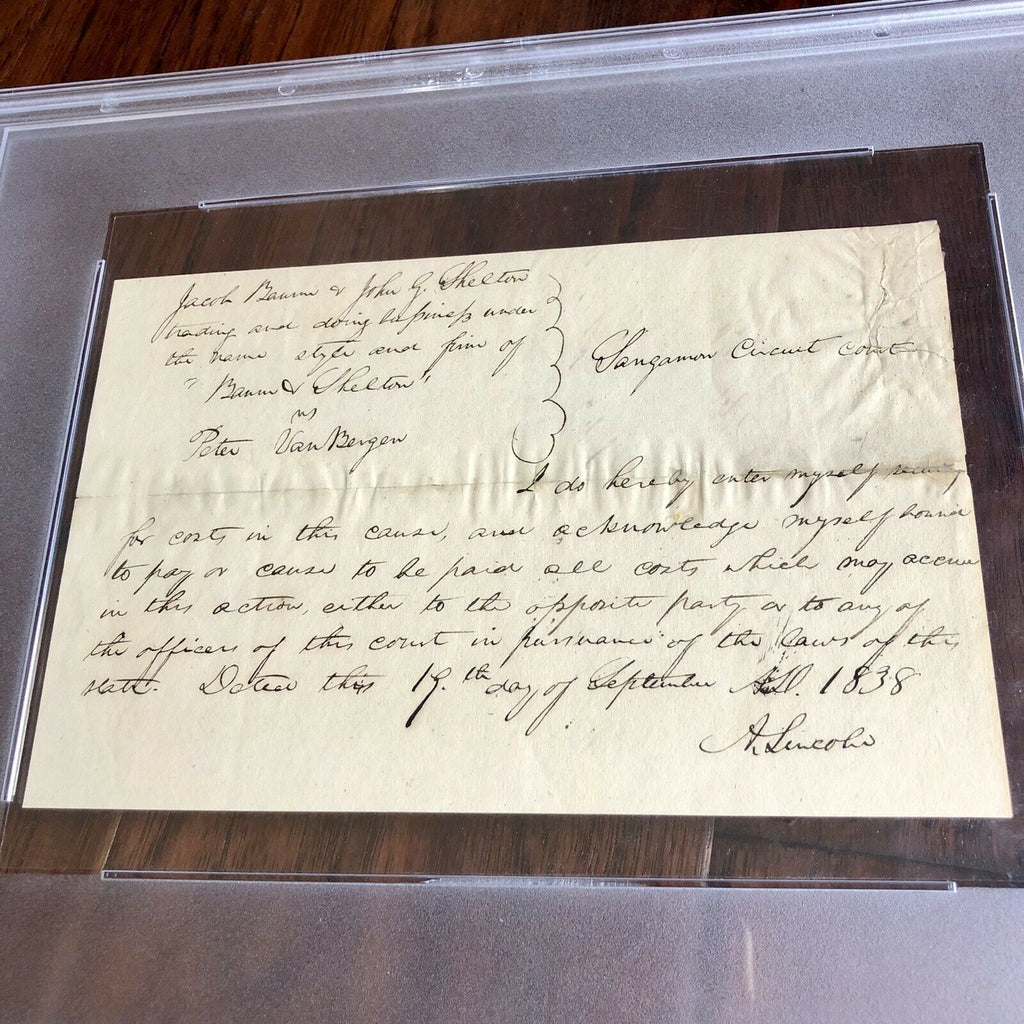 Jacob Baum & John G. Shelton
trading and doing business under
the name style and firm of
"Baum & Shelton"
vs
Peter Van Bergen
Sangamon Circuit Court
I do hereby enter myself security
for costs in this cause, and acknowledge myself bound
to pay or cause to be paid all costs which may accrue
in this action, either to the opposite party or to any of
the officers of this court in pursuance of the laws of this
state. Dated this 19.th day of September A.D. 1838
A. Lincoln